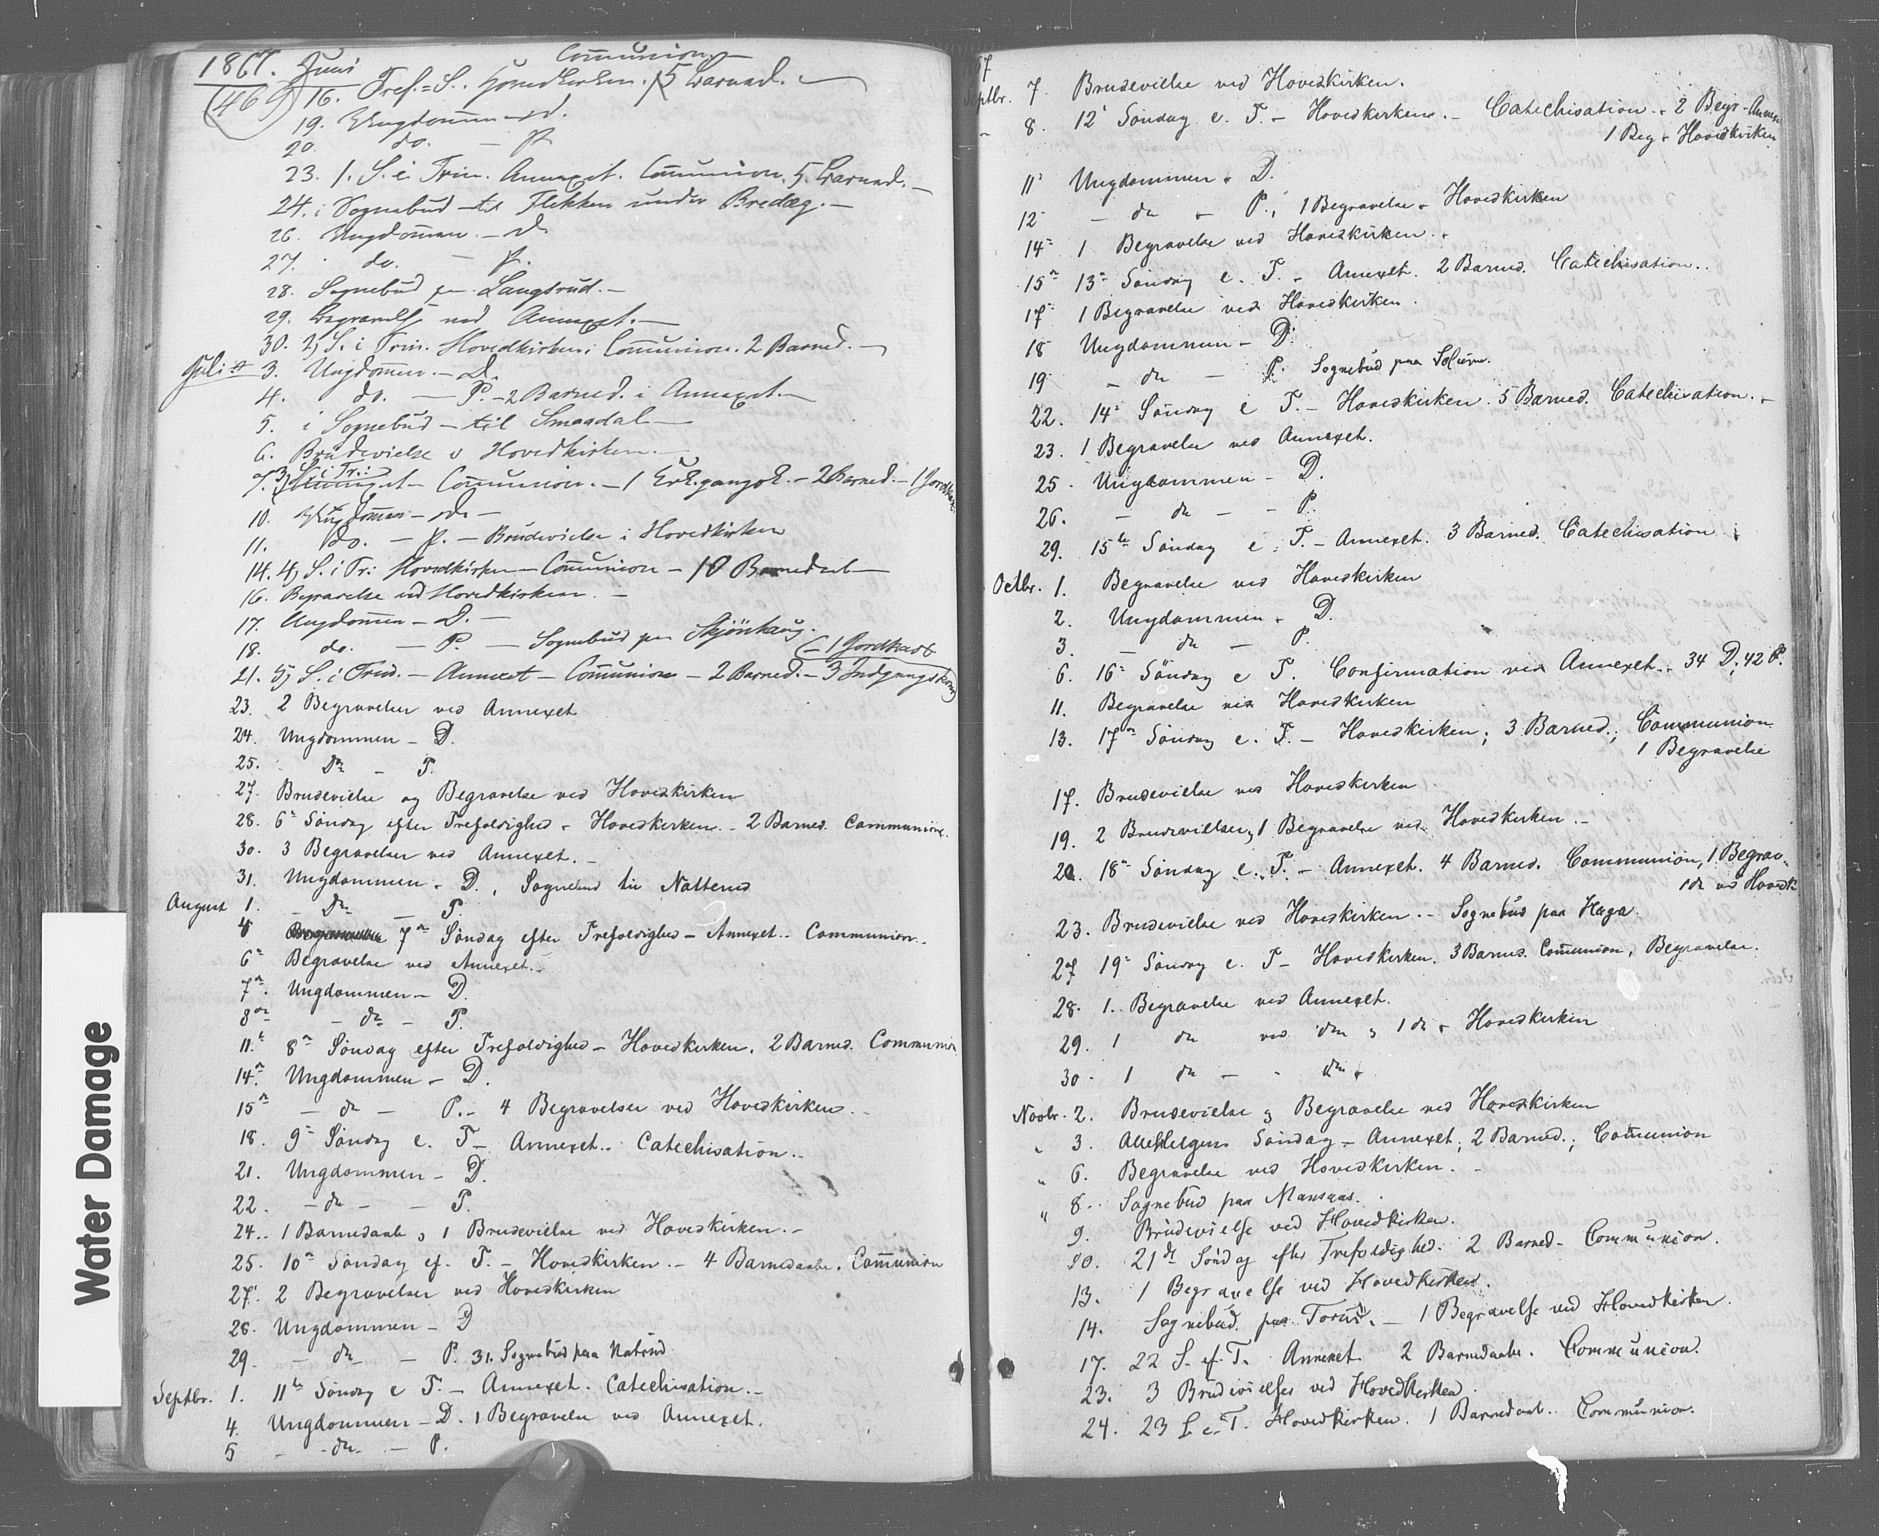 1867. Juni
Communion
(469) 16. Tref. S. Hovedkirken. 5 Barned.
19. Ungdommen - D.
20. do. - P.
23. 1. S. i Trin. Annexet. Communion. 5. Barned. -
24. i Sognebud - til Flekken under Bredæg. -
26. Ungdommen - D.
27. do. - P.
28. Sognebud paa Langsrud. -
29. Begravelse ved Annexet. -
30. 2) S. i Trin. Hovedkirken; Communion. 2 Barned. -
Juli 3. Ungdommen. - D.
4. do. - P. - 2 Barned. i Annexet. -
5. i Sognebud - til Smaadal -
6. Brudevielse v Hovedkirken. -
7. 3) S. i Tr.: Annexet - Communion. - 1 - 2 Barned. - 1 Jordkast
10. Ungdommen - D -
11. do. - P. - Brudevielse i Hovedkirken
14. 4) S. i Tr: Hovedkirken - Communion - 10 Barnedaab -
16. Begravelse ved Hovedkirken. -
17. Ungdommen - D. -
18. do. - P. - Sognebud paa Skjönhaug.
- 1 Jordkast
21. 5) S. i Trin. - Annexet - Communion - 2 Barned. - 3 Indgangskon
23. 2 Begravelser ved Annexet
24. Ungdommen - D.
25. do - P.
27. Brudevielse og Begravelse ved Hovedkirken
28. 6te Søndag efter Trefoldighed - Hovedkirken. - 2 Barned. Communion.
30. 3 Begravelser ved Annexet. -
31. Ungdommen - D., Sognebud til Natterud
August 1. - do - P.
4 7de Søndag efter Trefoldighed - Annexet. - Communion. -
6te Begravelse ved Annexet. -
7de. Ungdommen - D.
8de - do - P.
11te 8de Søndag efter Trefoldighed - Hovedkirken. 2 Barned. Communion
14de. Ungdommen - D.
15de - do - P. - 4 Begravelser ved Hovedkirken. -
18. 9de Søndag e. T - Annexet. - Catechisation. -
21. Ungdommen - D.
22. - do - P.
24. 1 Barnedaab og 1 Brudevielse ved Hovedkirken. -
25. 10de Søndag ef. T. - Hovedkirken. - 4 Barnedaabe. Communion
27. 2 Begravelser ved Hovedkirken
28. Ungdommen - D
29. - do - P. 31. Sognebud paa Natrud
Septbr. 1. 11te Søndag e T. - Annexet. Catechisation. -
4. Ungdommen - D. 1 Begravelse ved Annexet.
5 - do - P.
67
Septbr. 7. Brudevielse ved Hovedkirken.
- 8. 12te Søndag e. T. - Hovedkirken. - Catechisation. - 2 Begr - Annex
1 Beg - Hovedkirken
11te Ungdommen - D.
12 - do - P.; 1 Begravelse - Hovedkirken
14de 1 Begravelse ved Hovedkirken. -
15de 13de Søndag e. T. - Annexet. 2 Barned. Catechisation. -
17de 1 Begravelse ved Hovedkirken.
18 Ungdommen - D.
19 - do - P. Sognebud paa
22. 14de Søndag e T. - Hovedkirken. 5 Barned. Catechisation. -
23. 1 Begravelse ved Annexet.
25. Ungdommen - D.
26. - do - - P.
29. 15de Søndag e. T. - Annexet. 3 Barned. Catechisation.
Octbr. 1. Begravelse ved Hovedkirken
2. Ungdommen - D.
3. - do - P.
6. 16de Søndag e T. Confirmation ved Annexet. - 34 D, 42 P.
11. Begravelse ved Hovedkirken
13. 17de Søndag e. T. - Hovedkirken; 3 Barned.; Communion
1 Begravelse
17. Brudevielse ved Hovedkirken
19. 2 Brudevielser, 1 Begravelse ved Hovedkirken. -
20. 18de Søndag e. T. - Annexet. 4 Barned. Communion, 1 Begrav.
1 do ved Hovedk
23. Brudevielse ved Hovedkirken. - Sognebud paa Haga
27 19de Søndag e. T - Hovedkirken. 3 Barned. Communion, Begravelse.
28. 1. Begravelse ved Annexet.
29. 1 do ved do og 1 do - Hovedkirken
30. 1 do - - do -
Novbr. 2. Brudevielse og Begravelse ved Hovedkirken
" 3. Allehelgens Søndag - Annexet; 2 Barned.; Communion
" 6. Begravelse ved Hovedkirken. -
" 8. Sognebud paa Mansaas.
9. Brudevielse ved Hovedkirken.
10. 21de Søndag efter Trefoldighed. 2 Barned - Communion.
13. 1 Begravelse ved Hovedkirken.
14. Sognebud paa Torud. - 1 Begravelse ved Hovedkirken.
17. 22 S. ef. T. Annexet 2 Barnedaabe. Communion.
23. 3 Brudevielser ved Hovedkirken.
24. 23 S. e. T. Hovedkirken. 1 Barnedaab. Communion.
Water Damage